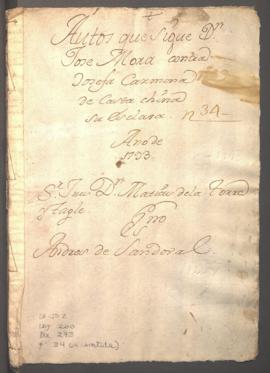 Autos que sigue Dn.
Jose Mora contra
Josefa Carmona
de Casta china
su Esclava. n 34
Año de
1793
Sr. Juez Dn. Matias de la Torre
y Tagle.
Essno
Andres de Sandoval
Leg 200
273
f° 34